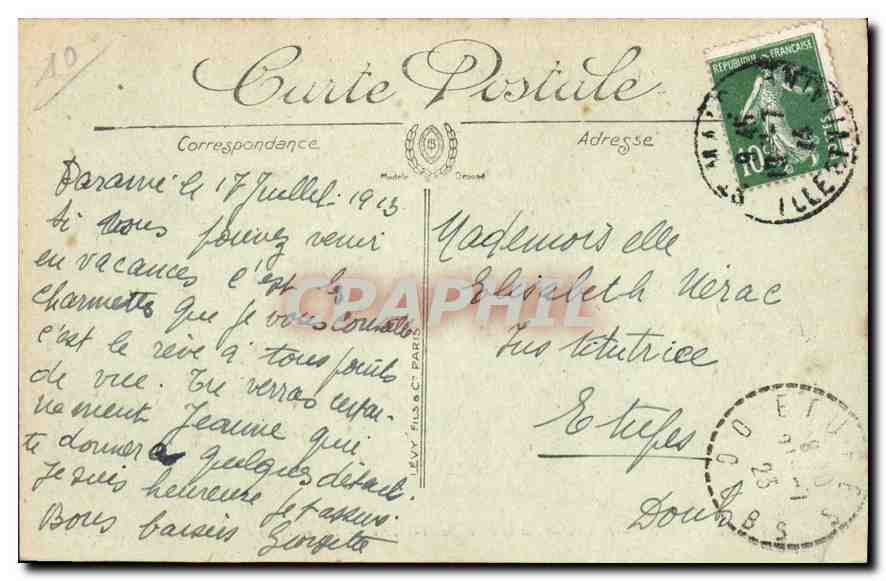 10
Carte Postale
Correspondance
Adresse
Modèle Déposé
REPUBLIQUE FRANCAISE
10
Paramé le 17 Juillet 1913
Si vous pouvez venir
en vacances c'est les
Charmettes que je vous conseille
c'est le rêve à tous points
de vue. Tu verras certai-
nement Jeanne qui
te donnera quelques détails.
Je suis heureuse je t'assure.
Bons baisers Georgette
Mademoiselle
Elisabeth Nérac
Institutrice
Etupes
Doubs
LÉVY FILS & Cie PARIS
ETUPES
DOUBS
CPAPHIL